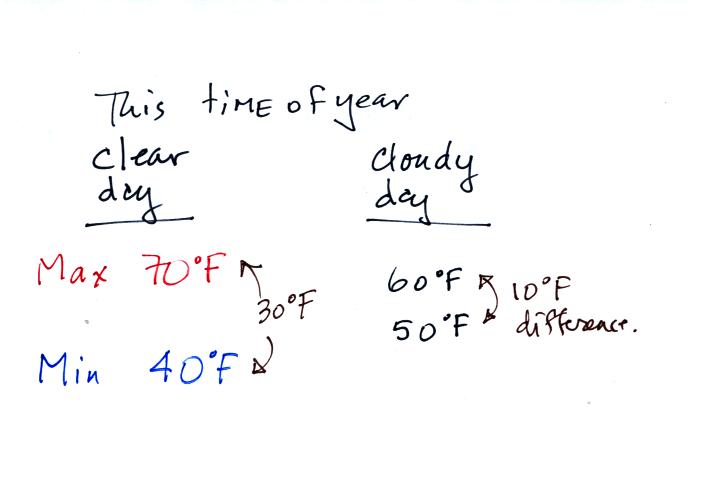 This tIME of year
clear cloudy
day day
Max 70°F 60°F 10°F
30°F
50°F difference.
Min 40°F